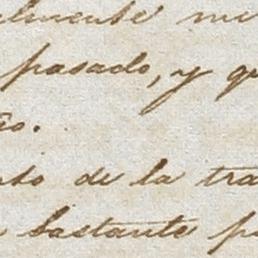 almente me
pasado, y qu
ño.
nto de la tra
bastante pa